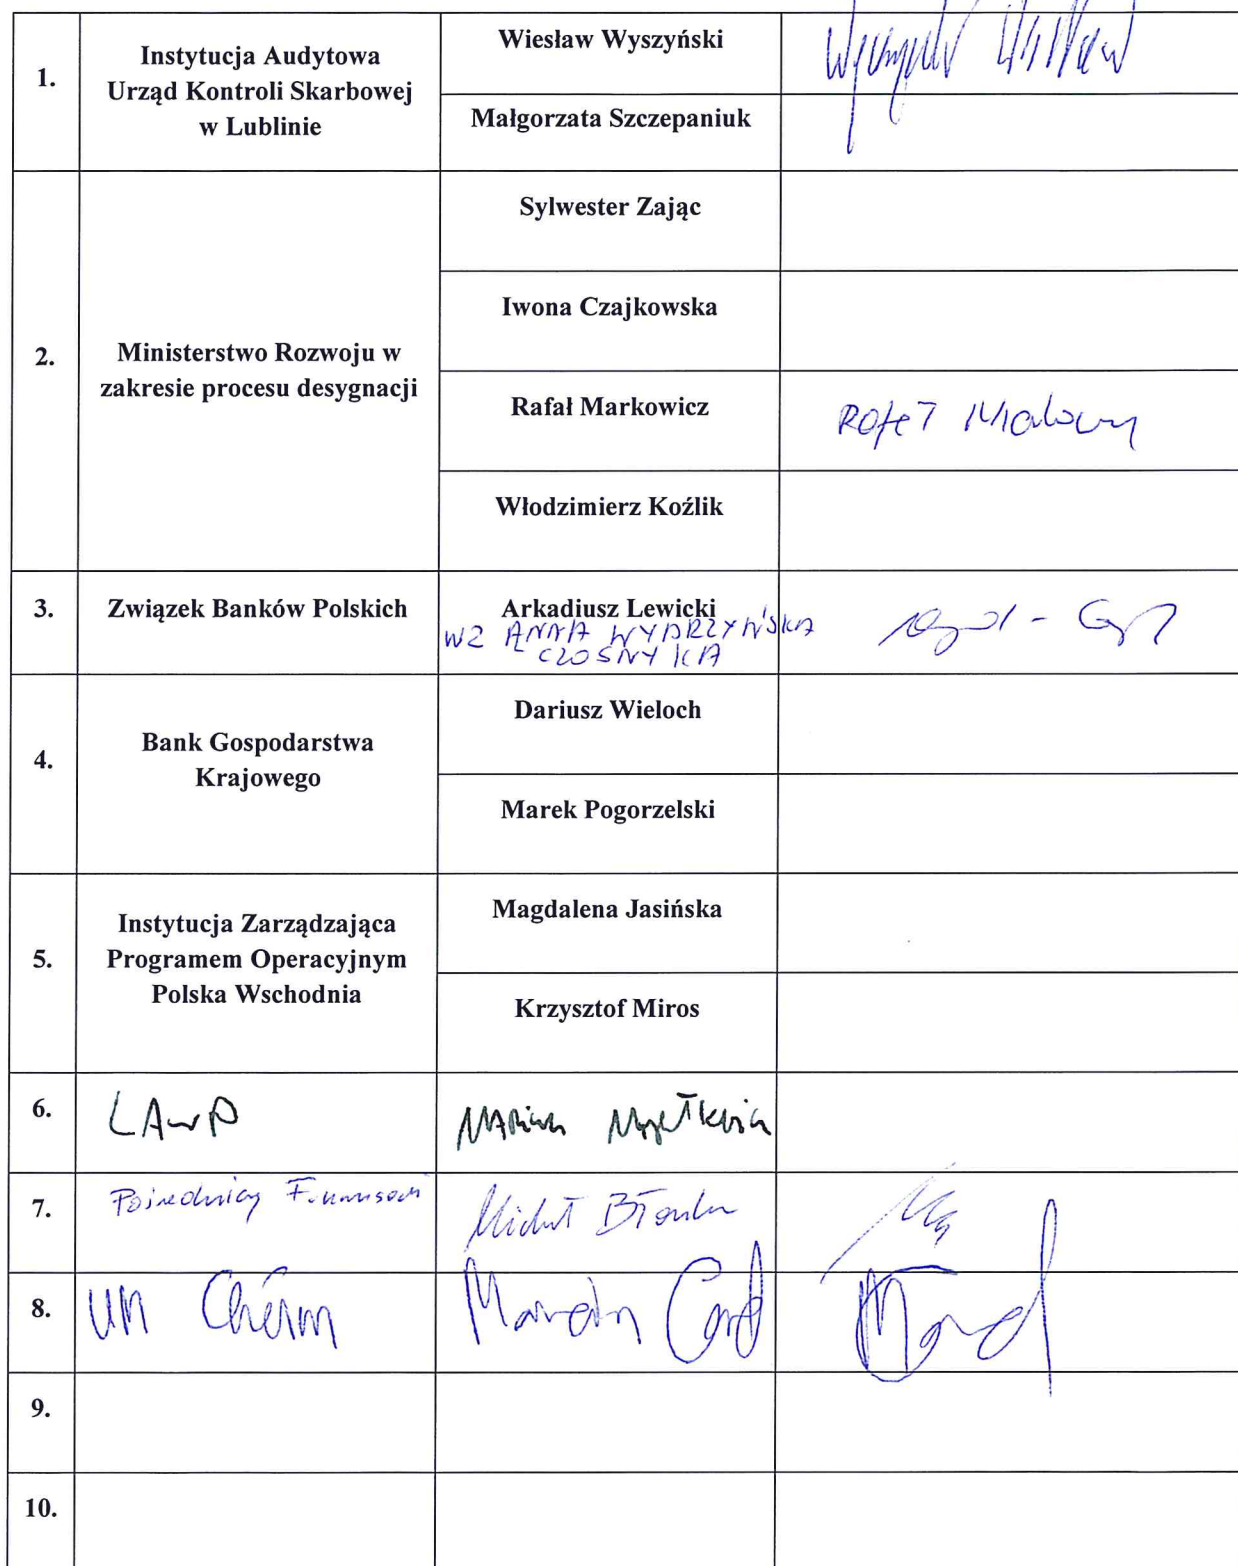 1.
Instytucja Audytowa
Urząd Kontroli Skarbowej
w Lublinie
Wiesław Wyszyński
Małgorzata Szczepaniuk
2.
Ministerstwo Rozwoju w
zakresie procesu desygnacji
Sylwester Zając
Iwona Czajkowska
Rafał Markowicz
Włodzimierz Koźlik
3.
Związek Banków Polskich
Arkadiusz Lewicki
WZ ANNA WYDRZYŃSKA
CZOSNYKA
4.
Bank Gospodarstwa
Krajowego
Dariusz Wieloch
Marek Pogorzelski
5.
Instytucja Zarządzająca
Programem Operacyjnym
Polska Wschodnia
Magdalena Jasińska
Krzysztof Miros
6.
LAWP
7.
Pośrednicy
Michał
8.
UM Chełm
Marcin
9.
10.